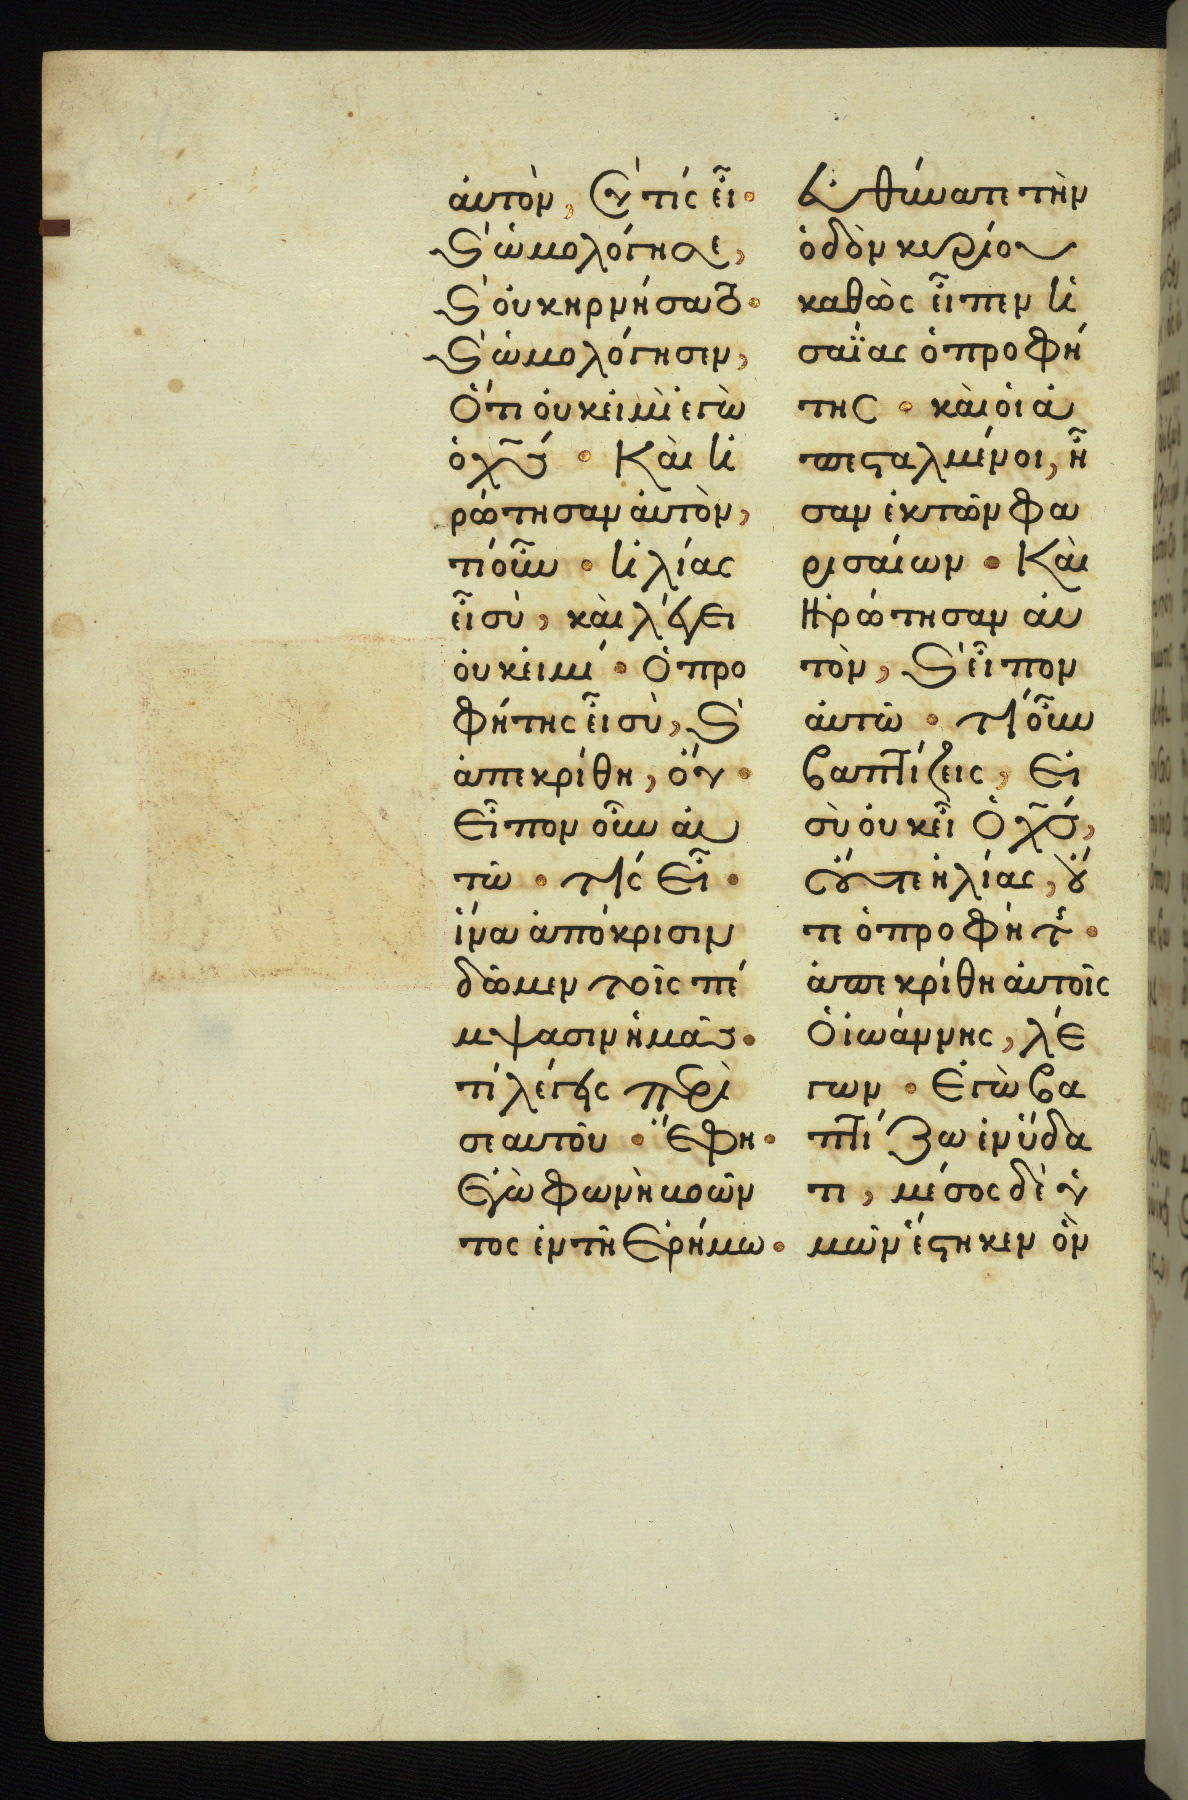 ἀυτὸν, Σὺ τίς εἶ·
Ϛ ὡμολόγησε,
Ϛ οὐκ ἠρνήσατο·
Ϛ ὡμολόγησεν,
Ὅτι οὐκ εἰμὶ ἐγὼ
ὁ χς· Καὶ ἐ
ρώτησαν ἀυτὸν,
τί οὖν· ἡλίας
εἶ σὺ, καὶ λέγει
οὐκ εἰμί· Ὁ προ
φήτης εἶ σὺ, Ϛ
ἀπεκρίθη, ὄυ·
Εἶπον οὖν ἀυ
τῶ· τίς Εἶ·
ἵνα ἀπόκρισιν
δῶμεν τοῖς πέ
μψασιν ἡμᾶς·
τί λέγεις περὶ
σεαυτοῦ· Ἔφη·
Ἐγὼ φωνὴ βοῶν
τος ἐν τῆ Ἐρήμω·
ἐυθύνατε τὴν
ὁδὸν κυρίου
καθὼς εἶπεν ἡ
σαΐας ὁ προφή
της· κὰι ὁι ἀ
πεσταλμένοι, ἦ
σαν ἐκ τῶν φα
ρισαίων· Κὰι
Ἠρώτησαν ἀυ
τὸν, Ϛ εἶπον
ἀυτῶ· τί οὖν
βαπτίζεις, Εἰ
σὺ οὐκ εἶ Ὁ χς,
ὄυτε ἡλίας, ὄυ
τε ὁ προφήτης·
ἀπεκρίθη ἀυτοῖς
Ὁ ἰωάννης, λέ
γων· Ἐγὼ βα
πτίζω ἐν ὕδα
τι, μέσος δὲ ὑ
μῶν ἕστηκεν ὃν